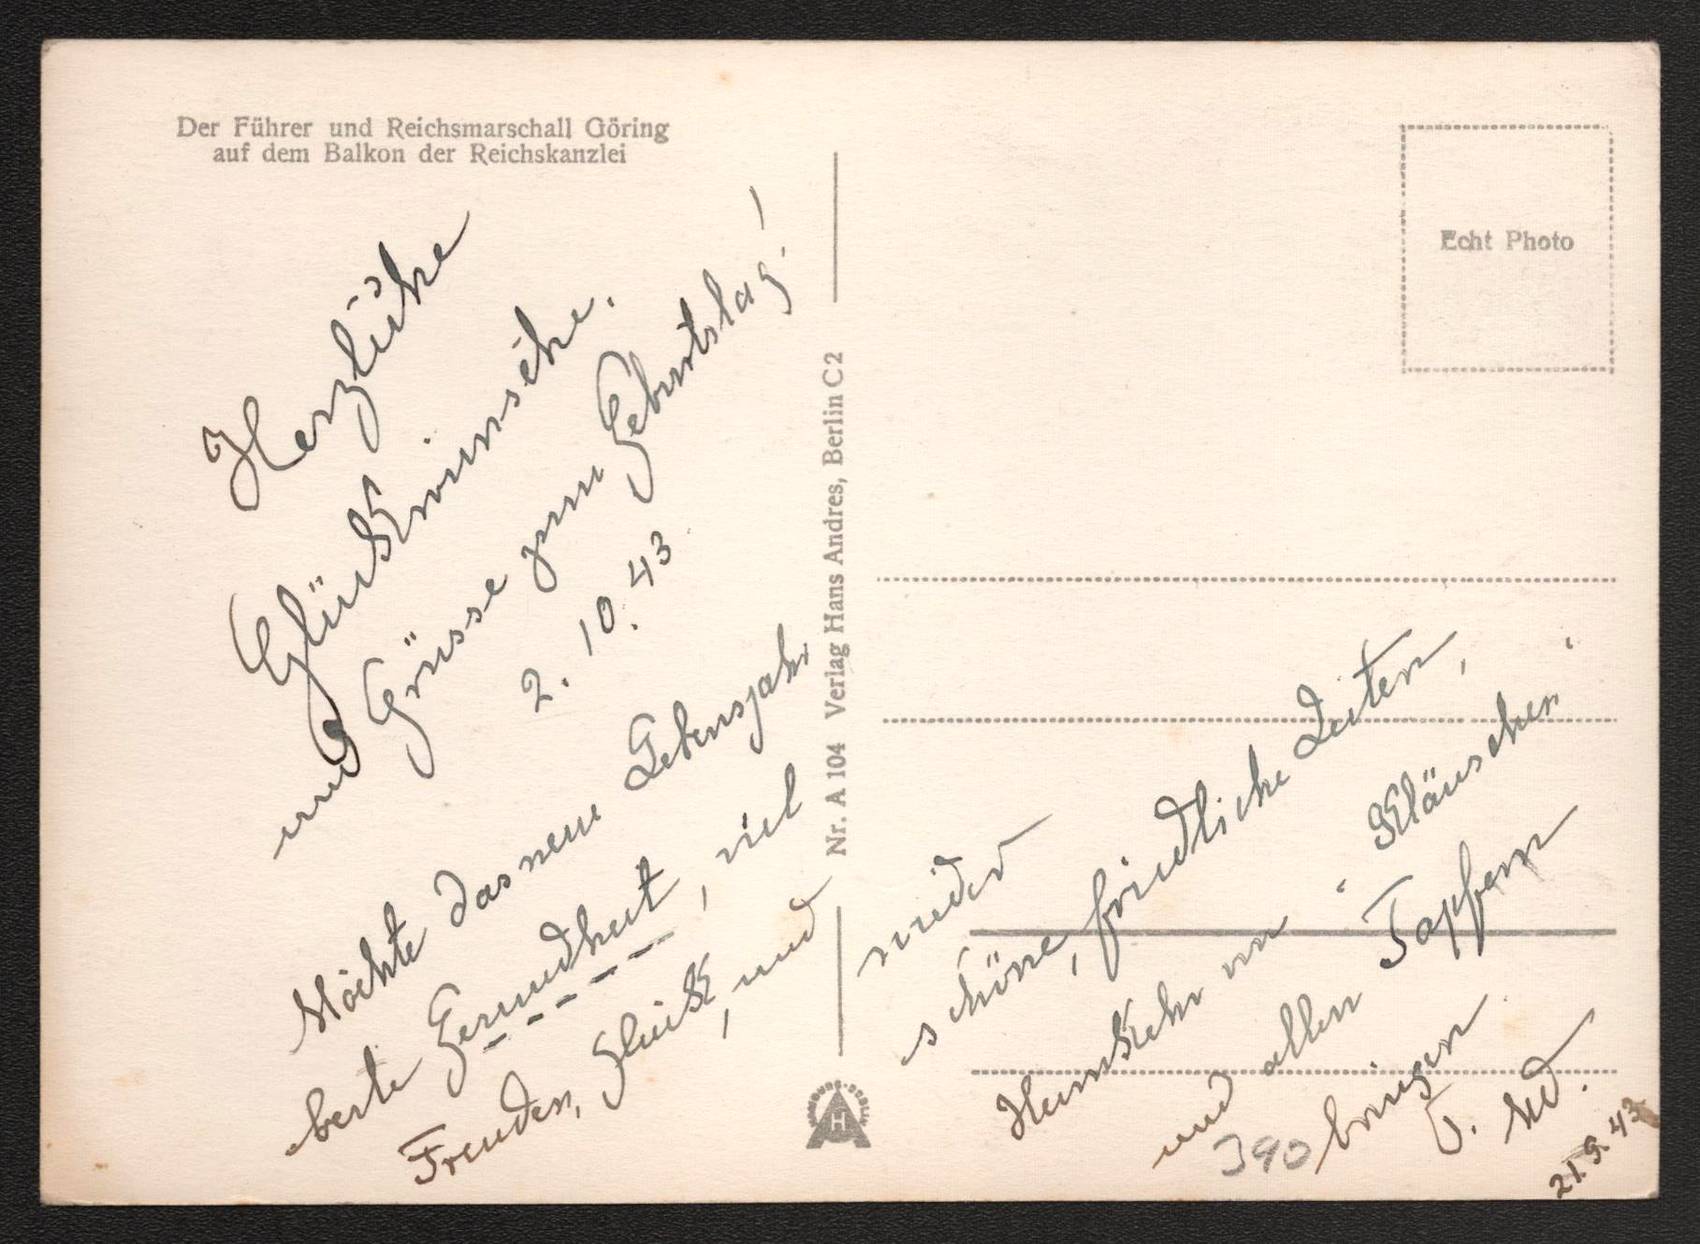 Der Führer und Reichsmarschall Göring
auf dem Balkon der Reichskanzlei
Herzliche
Glückwünsche
und Grüsse zum Geburtstag!
2. 10. 43
Möchte das neue Lebensjahr
beste Gesundheit, viel
Freuden, Glück, und
wieder
schöne, friedliche Zeiten,
Heimkehr von "Kläuschen"
und allen Tapfern
bringen
21.9.43
390
Nr. A 104 Verlag Hans Andres, Berlin C 2
Echt Photo
H